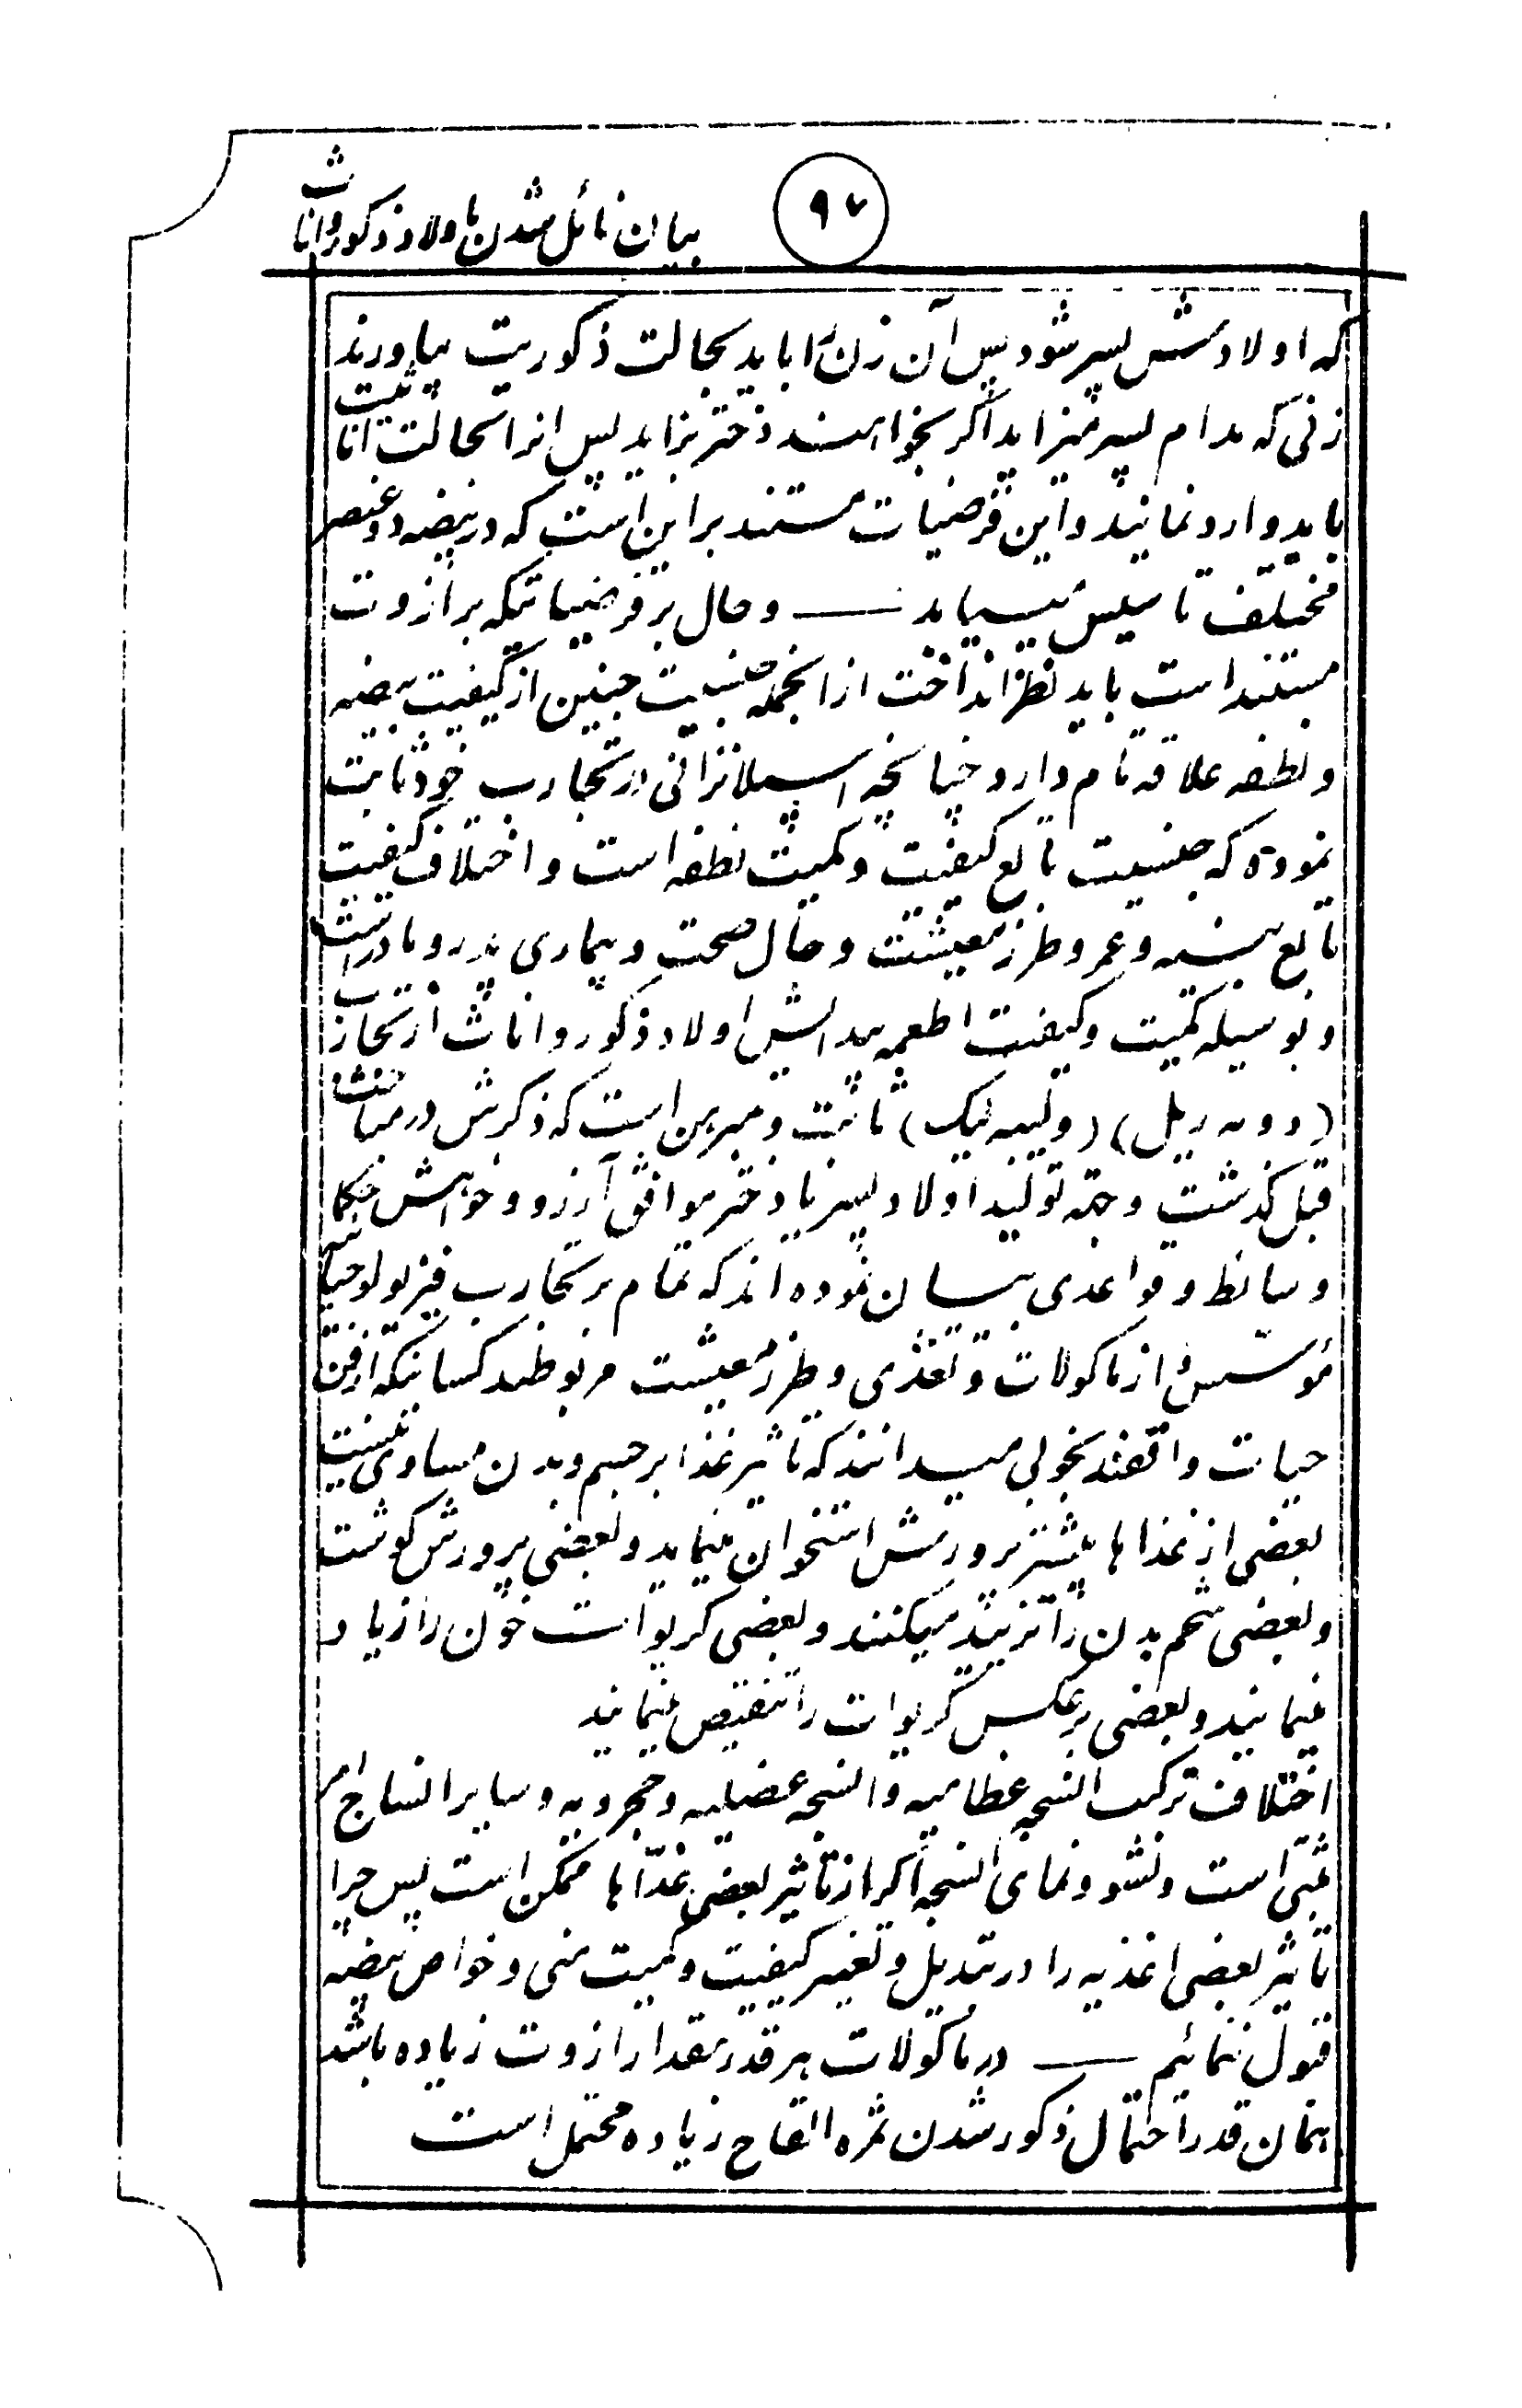 ۹۷
بیان نائل شدن باولاد ذکور واناث
که اولادش پسر شود پس آن زن را باید بحالت ذکوریت بیاورند
زنی که مدام پسر میزاید اگر بخواهند دختر بزاید پس انرا بحالت اناثیت
باید وارد نمایند واین فرضیات مستند براین است که در بیضه دو عنصر
مختلف تاسیس مییابد — وحال بر فرضیاتیکه بر ازوت
مستند است باید نظر انداخت ازانجمله جنسیت جنین از کیفیت بیضه
ونطفه علاقه تام دارد چنانچه اسپلانزانی در تجارب خود ثابت
نموده که جنسیت تابع کیفیت وکمیت نطفه است واختلاف کیفیت
تابع بنیه وعمر وطرز معیشت وحال صحت وبیماری پدر ومادر است
وبوسیله کمیت وکیفیت اطعمه پیدایش اولاد ذکور واناث از تجارب
(دوبه ریل) (ولیبه لیک) ثابت ومبرهن است که ذکرش در مباحث
قبل گذشت وجهة تولید اولاد پسر یا دختر موافق آرزو وخواهش حکما
وسائط وقواعدی بیان نموده اند که تمام بر تجارب فیزیولوجیائیه
مؤسس واز ماکولات وتغذی وطرز معیشت مربوطند کسانیکه از فن
حیات واقفند بخوبی میدانند که تاثیر غذا بر جسم وبدن مساوی نیست
بعضی از غذاها بیشتر پرورش استخوان مینماید وبعضی پرورش گوشت
وبعضی شحم بدن را تزیید میکنند وبعضی کریوات خون را زیاد
مینمایند وبعضی برعکس کریوات را تنقیص مینمایند
اختلاف ترکیب انسجه عظامیه وانسجه عضلیه وحجرویه وسایر انساج امر
مثبتی است ونشو ونمای انسجه اگر از تاثیر بعضی غذاها ممکن است پس چرا
تاثیر بعضی اغذیه را در تبدیل وتغییر کیفیت وکمیت منی وخواص بیضه
قبول ننمائیم — در ماکولات هر قدر مقدار ازوت زیاده باشد
همان قدر احتمال ذکور شدن ثمره القاح زیاده محتمل است